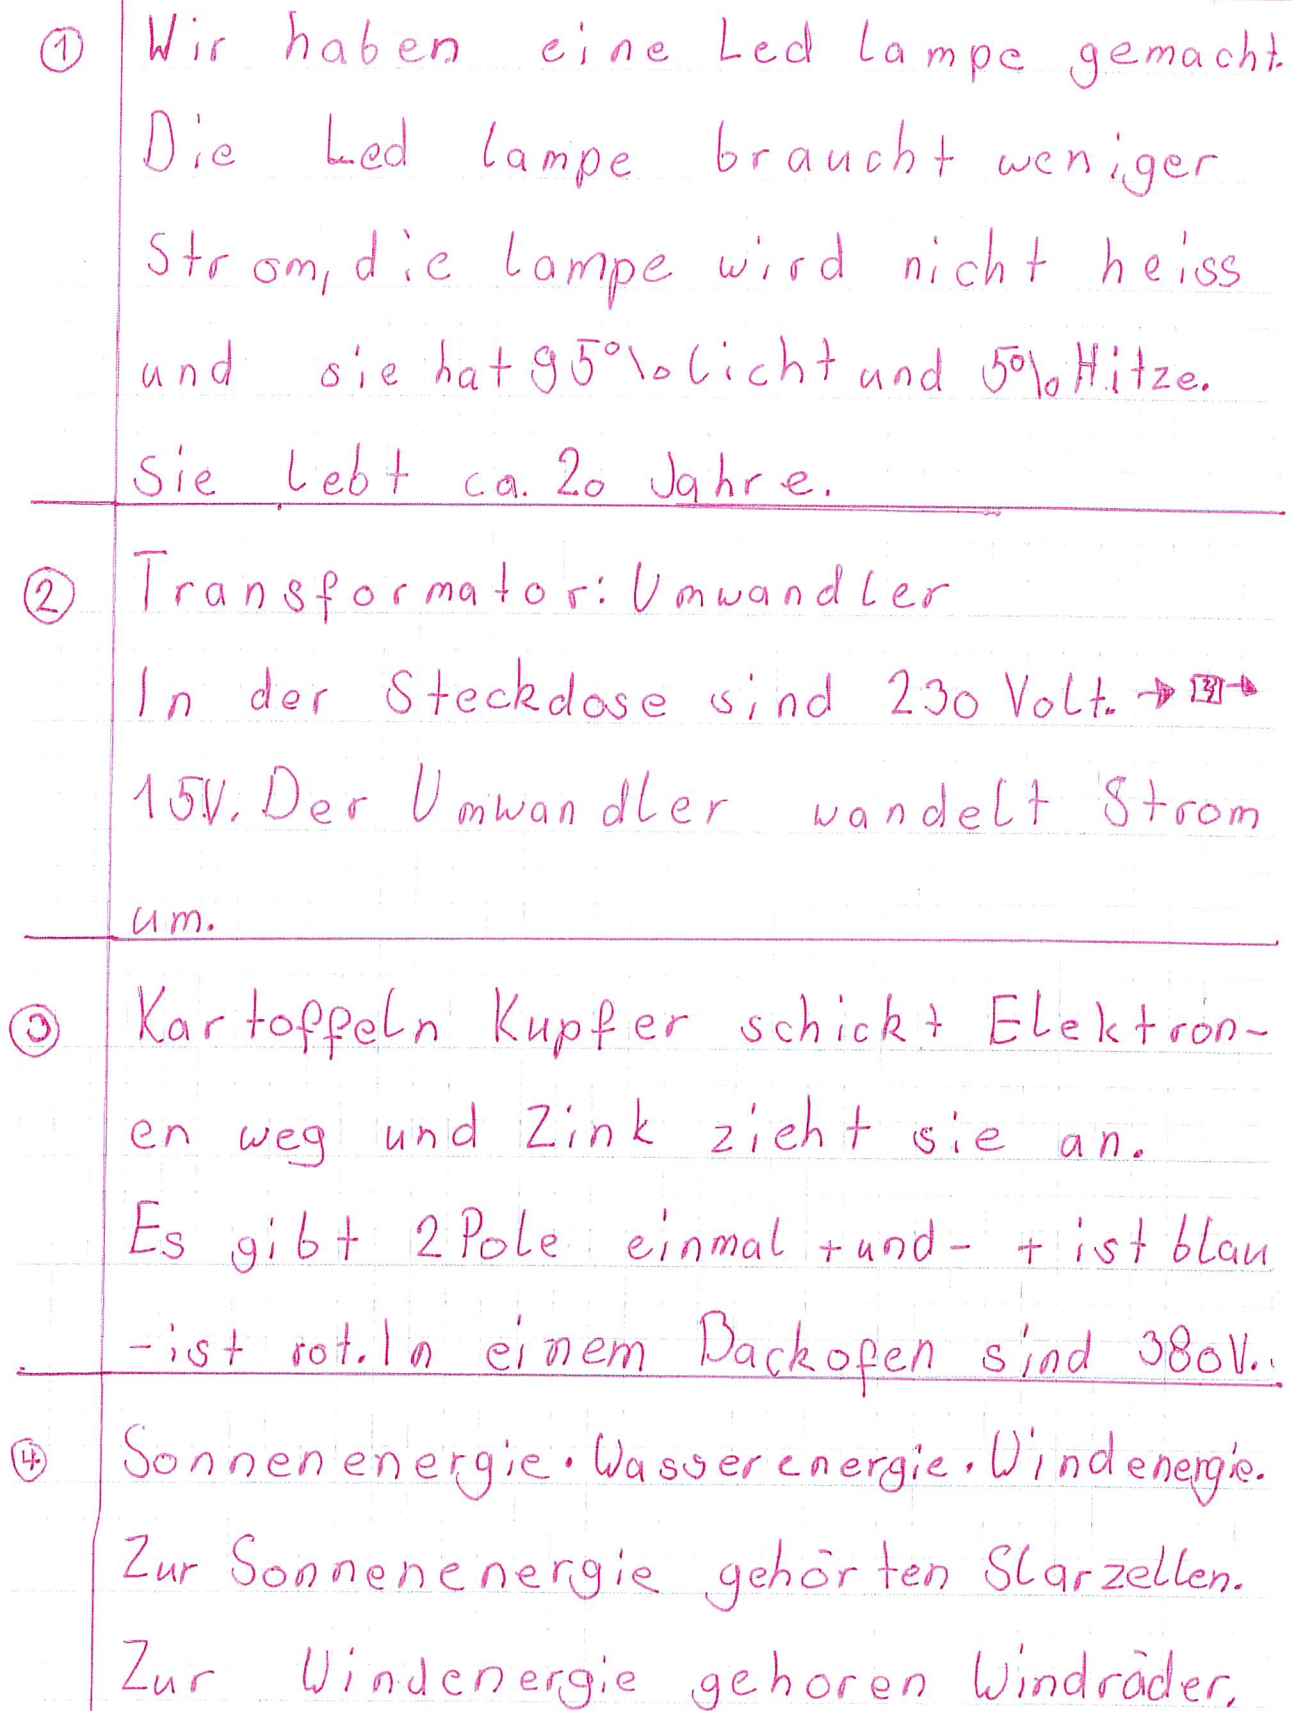 ① Wir haben eine Led lampe gemacht.
Die Led lampe braucht weniger
Strom, die lampe wird nicht heiss
und sie hat 95% licht und 5% Hitze.
Sie lebt ca. 20 Jahre.
② Transformator: Umwandler
In der Steckdose sind 230 Volt. → →
15V. Der Umwandler wandelt Strom
um.
③ Kartoffeln Kupfer schickt Elektron-
en weg und Zink zieht sie an.
Es gibt 2 Pole einmal + und - + ist blau
- ist rot. In einem Backofen sind 380V.
④ Sonnenenergie. Wasserenergie. Windenergie.
Zur Sonnenenergie gehörten Slarzellen.
Zur Windenergie gehoren Windräder.